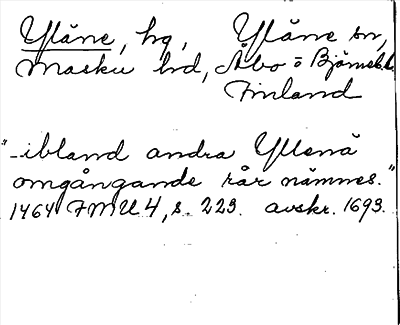 Yläne, hg, Yläne sn,
Masku hd, Åbo o Björneb. l.
Finland
"-ibland andra Yllenä
omgångande rår nämnes."
1464 FMU 4, s. 223. avskr. 1693.